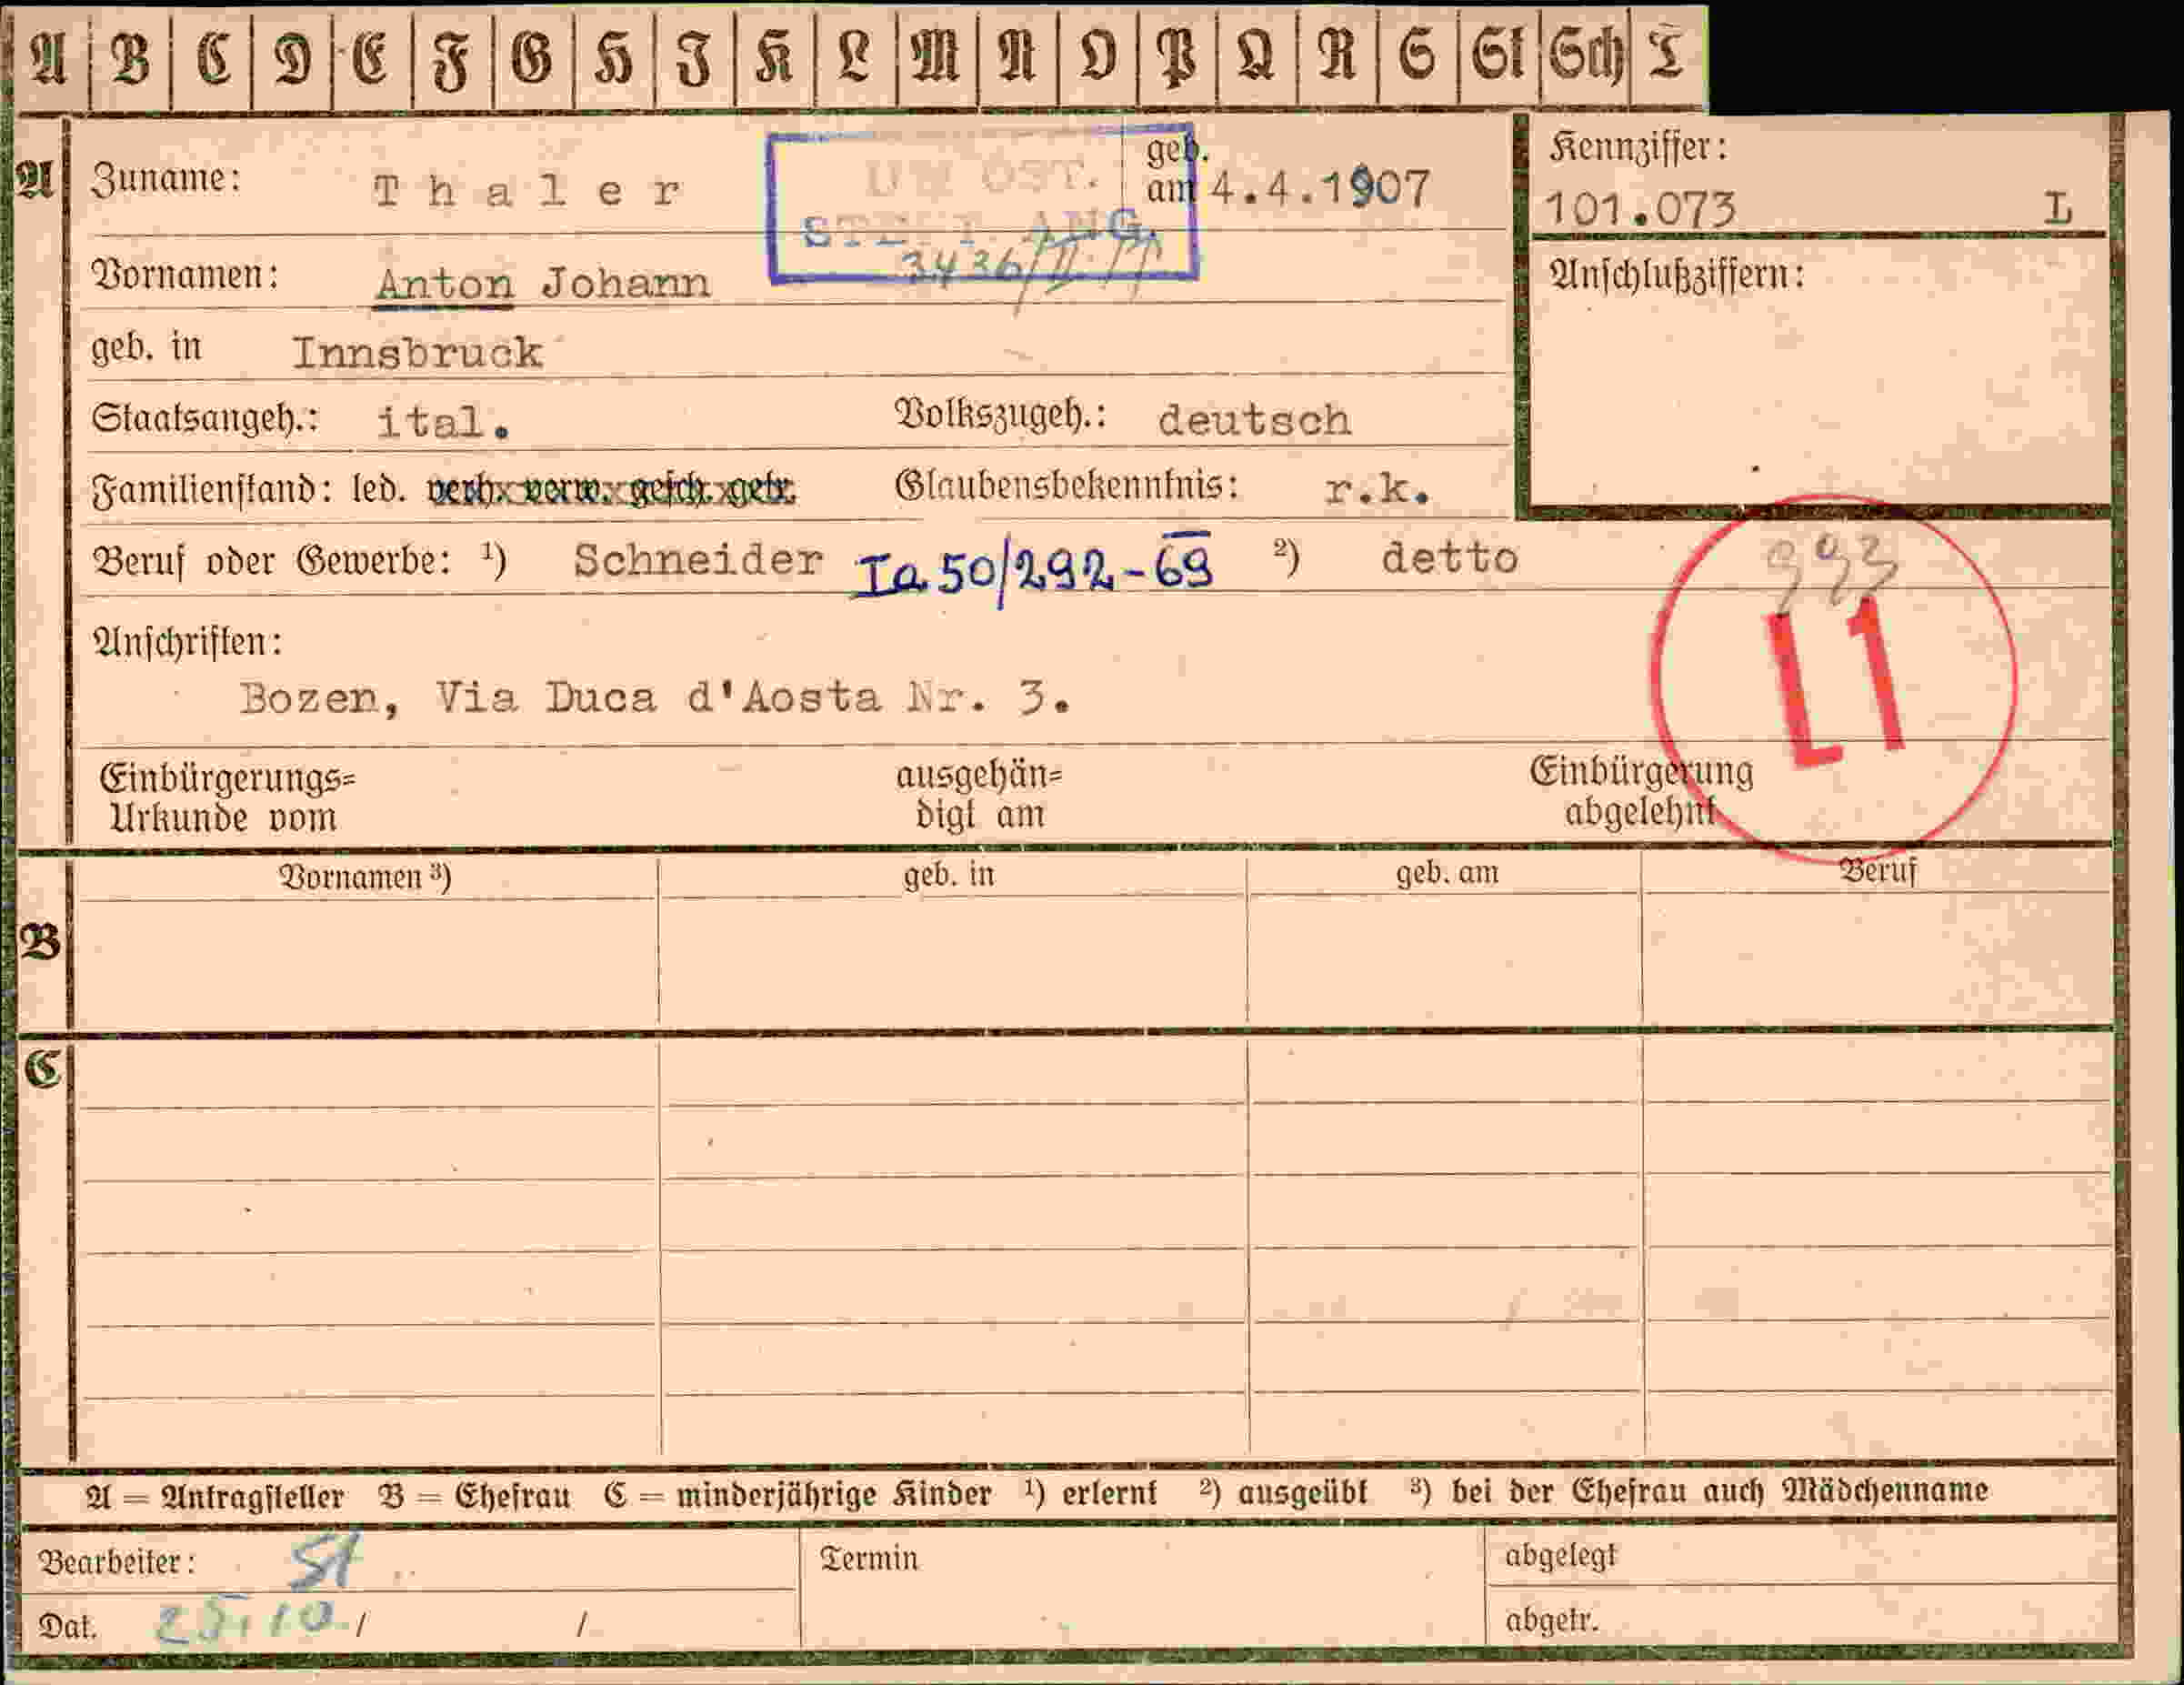 A B C D E F G H I K L M N O P Q R S St Sch T
A Zuname: Thaler geb. am 4.4.1907 Kennziffer:
101.073 L
ST ANG.
3436/II
Vornamen: Anton Johann Anschlußziffern:
geb. in Innsbruck
Staatsangeh.: ital. Volkszugeh.: deutsch
Familienstand: led. verh. verw. gesch. getr. Glaubensbekenntnis: r.k.
Beruf oder Gewerbe: ¹) Schneider Ia 50/292-69 ²) detto
993
L1
Anschriften:
Bozen, Via Duca d'Aosta Nr. 3.
Einbürgerungs= ausgehän= Einbürgerung
Urkunde vom digt am abgelehnt
Vornamen ³) geb. in geb. am Beruf
B
C
A = Antragsteller B = Ehefrau C = minderjährige Kinder ¹) erlernt ²) ausgeübt ³) bei der Ehefrau auch Mädchenname
Bearbeiter: St Termin abgelegt
Dat. 25.10. / / abgetr.